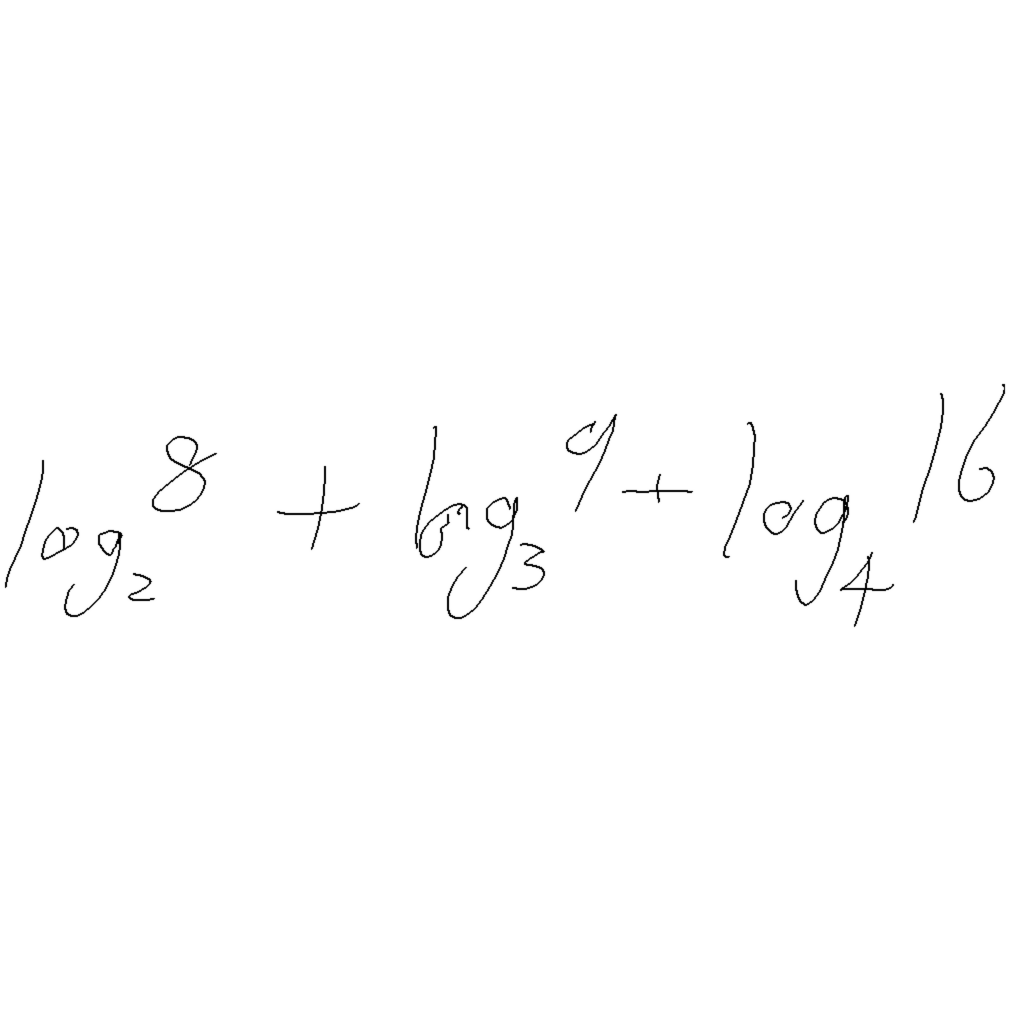 log₂8 + log₃9 + log₄16